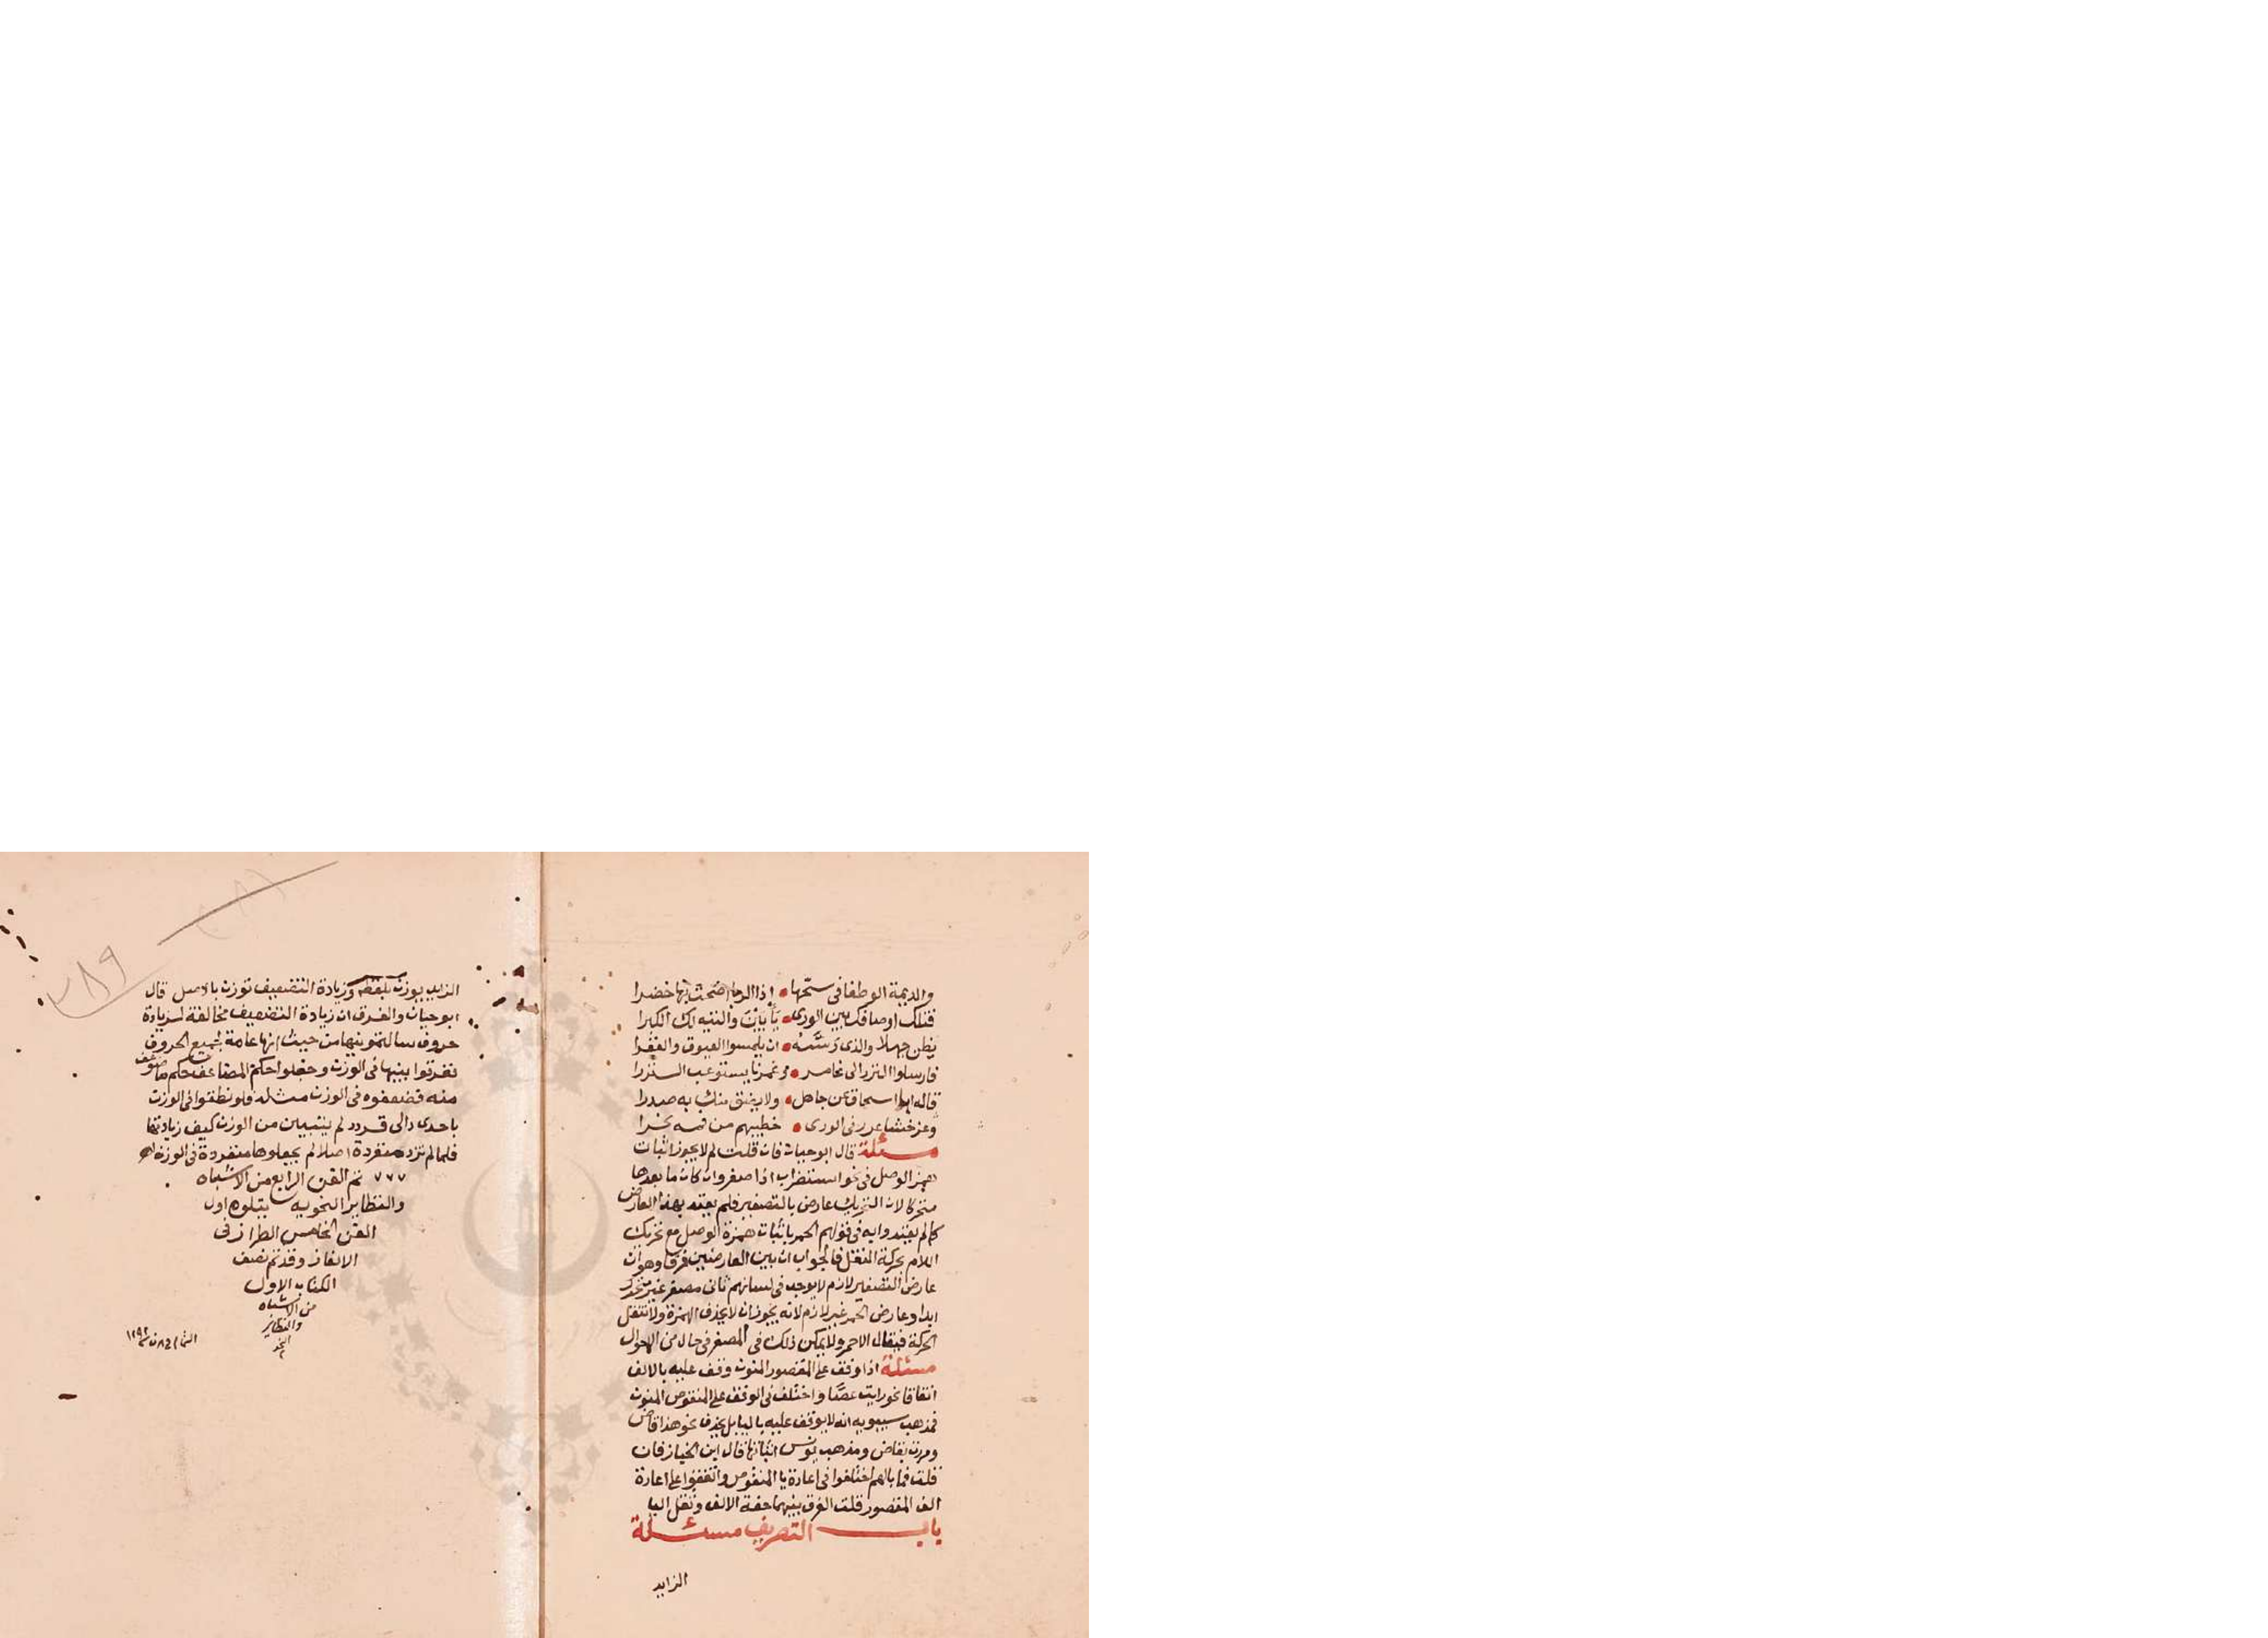 والديمة الوطفا في سحها • إذا الربا اضحت بها خضرا
فتلك اوصافك بين الورى • يأبين والتيه لك الكبرا
يظن جهلا والذى • ان يلمسوا العيوق والغفرا
فارسلوا النزر الى غامر • وغمرنا يستوعب النزرا
قاله اسحاق عن جاهل • ولا يضق منك به صدرا
وعن خشاعر في الورى • خطيبهم من فمه يخرا
مسئلة قال ابو حيان فان قلت لم لا يجوز اثبات
همز الوصل في نحو استضراب اذا صغروا ان كان ما بعدها
متحركا لان التحريك عارض بالتصغير فلم يعتد بهذا العارض
كما لم يعتدوا به في قولهم الحمر باثبات همزة الوصل مع تحريك
اللام بحركة النقل فالجواب ان بين العارضين فرقا وهو ان
عارض التصغير لازم لا يوجد في لسانهم ثانى مصغر غير متحرك
ابدا وعارض الحمر غير لازم لانه يجوز ان لا يحذف الهمزة ولا تنتقل
الحركة فيقال الاحمر ولا يمكن ذلك في المصغر في حال من الاحوال
مسئلة اذا وقف على المقصور المنون وقف عليه بالالف
اتفاقا نحو رايت عصًا واختلف في الوقف على المنقوص المنون
فمذهب سيبويه انه لا يوقف عليه باليا بل يحذف نحو هذا قاض
ومررت بقاض ومذهب يونس اثباتها قال ابن الخباز فان
قلت فما بالهم اختلفوا في اعادة يا المنقوص واتفقوا على اعادة
الف المقصور قلت الفرق بينهما خفة الالف وثقل اليا
باب التصريف مسئلة
الزايد
٣٨٩
الزايد يوزن بلفظه وزيادة التضعيف توزن بالاصل قال
ابو حيان والفرق ان زيادة التضعيف مخالفة لزيادة
حروف سالتمونيها من حيث انها عامة لجميع الحروف
ففرقوا بينها في الوزن وجعلوا حكم المضاعف حكم ما ضوعف
منه فضعفوه في الوزن مثله فلو نطقوا في الوزن
باحدى دالى قردد لم يتبين من الوزن كيف زيادتها
فلما لم تزد منفردة اصلا لم يجعلوها منفردة في الوزن اهـ
٧٧٧ تم الفن الرابع من الاشباه
والنظاير النحويه يتلوه اول
الفن الخامس الطراز في
الالغاز وقد تم نصف
الكتاب الاول
من الاشباه
والنظائر